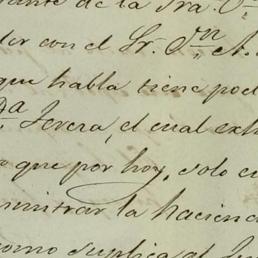 ante de la Sra. D
der con el Sr. Dn A.
que habla tiene pod
Da Jerera, el cual exh
o que por hoy, solo e
ministrar la hacienc
como suplica al Ju